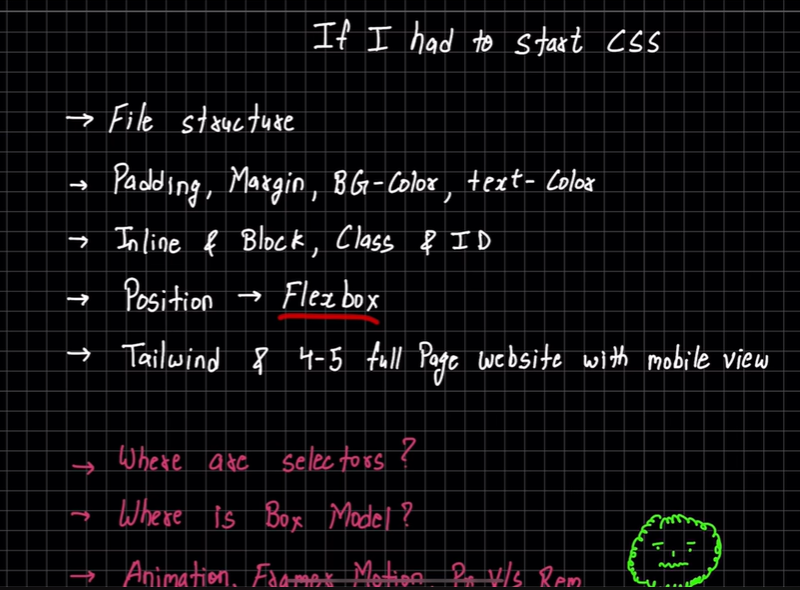 If I had to start CSS
→ File structure
→ Padding, Margin, BG-Color, text-Color
→ Inline & Block, Class & ID
→ Position → Flexbox
→ Tailwind & 4-5 full Page website with mobile view
→ Where are selectors?
→ Where is Box Model?
→ Animation, Framer Motion, Px V/s Rem